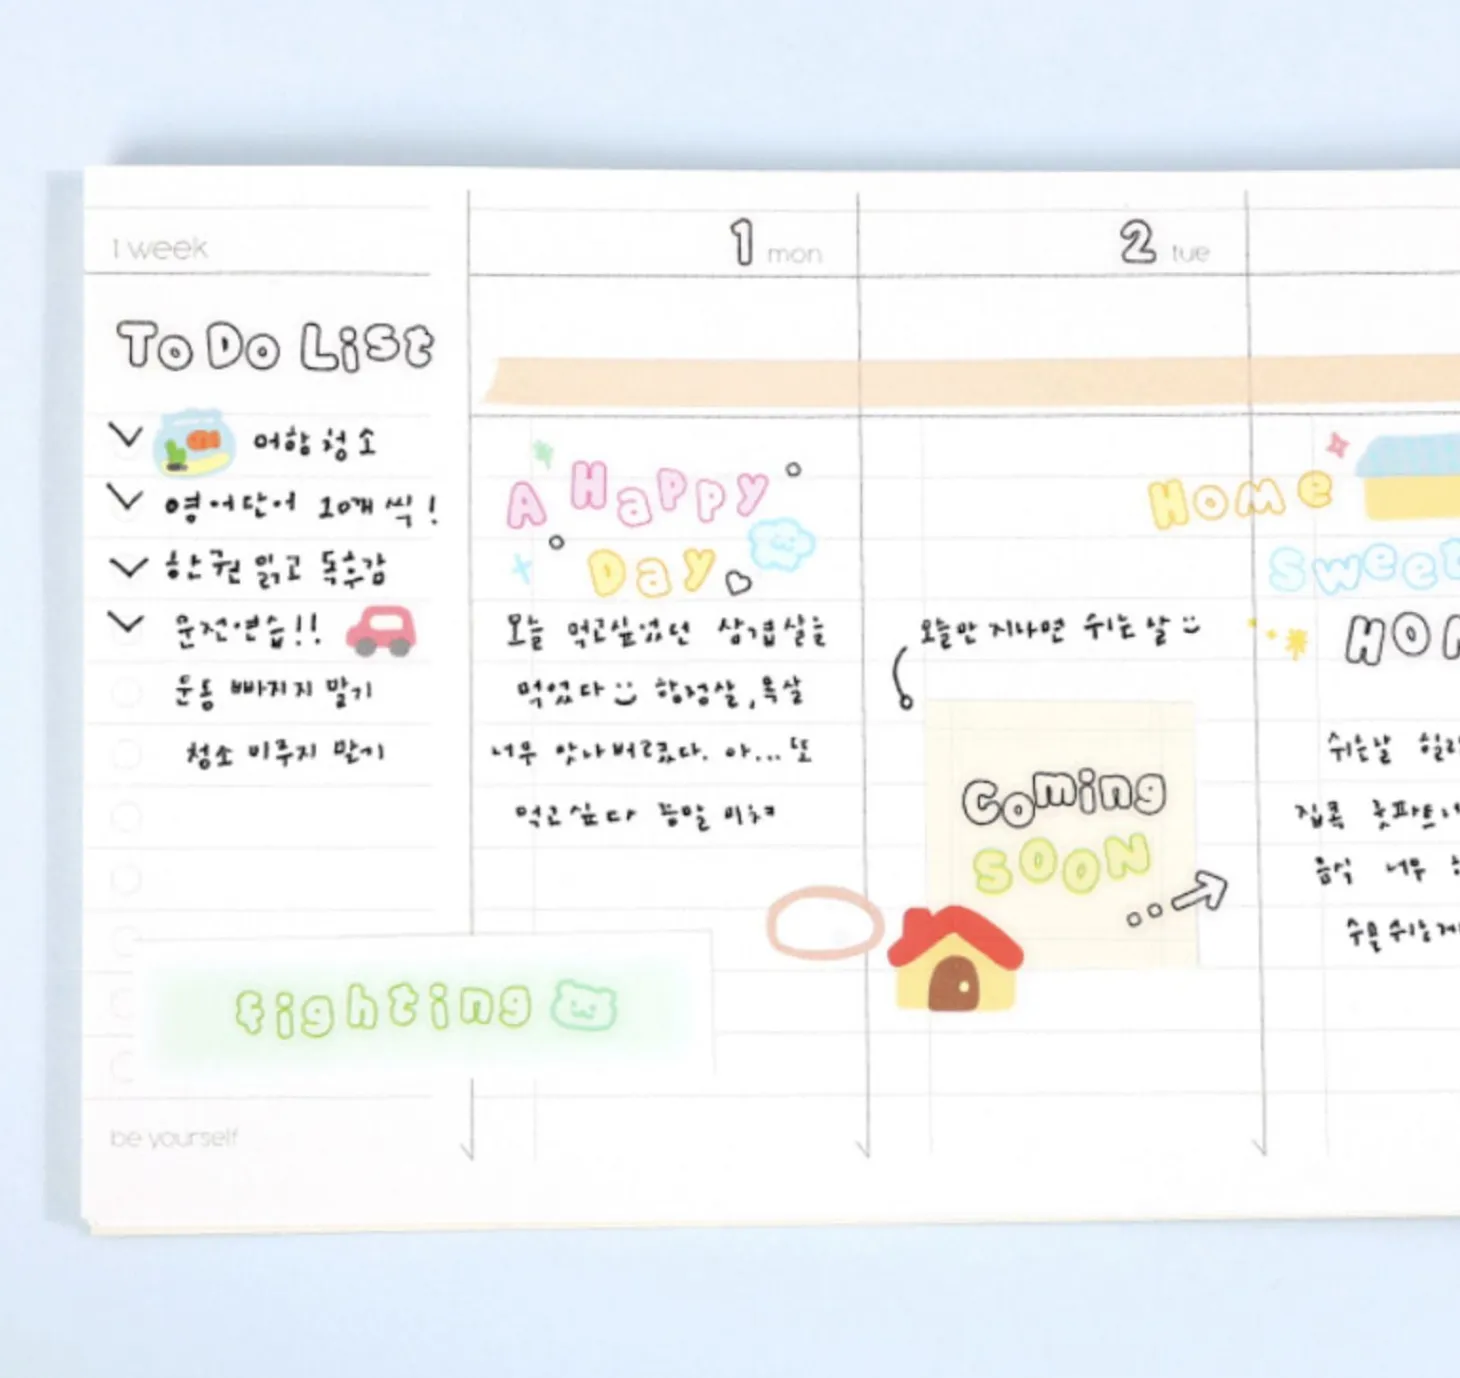 1 week
To Do List
어항 청소
영어단어 10개 씩!
한권 읽고 독후감
운전연습!!
운동 빠지지 말기
청소 미루지 말기
fighting
be yourself
1 mon
A Happy
Day
오늘 먹고싶었던 삼겹살을
먹었다 항정살, 목살
너무 맛나버렸다. 아... 또
먹고싶다 증말 미쳐
2 tue
오늘만 지나면 쉬는 날
Coming
SOON
Home
Sweet
HO
쉬는날
집콕
음식 너무